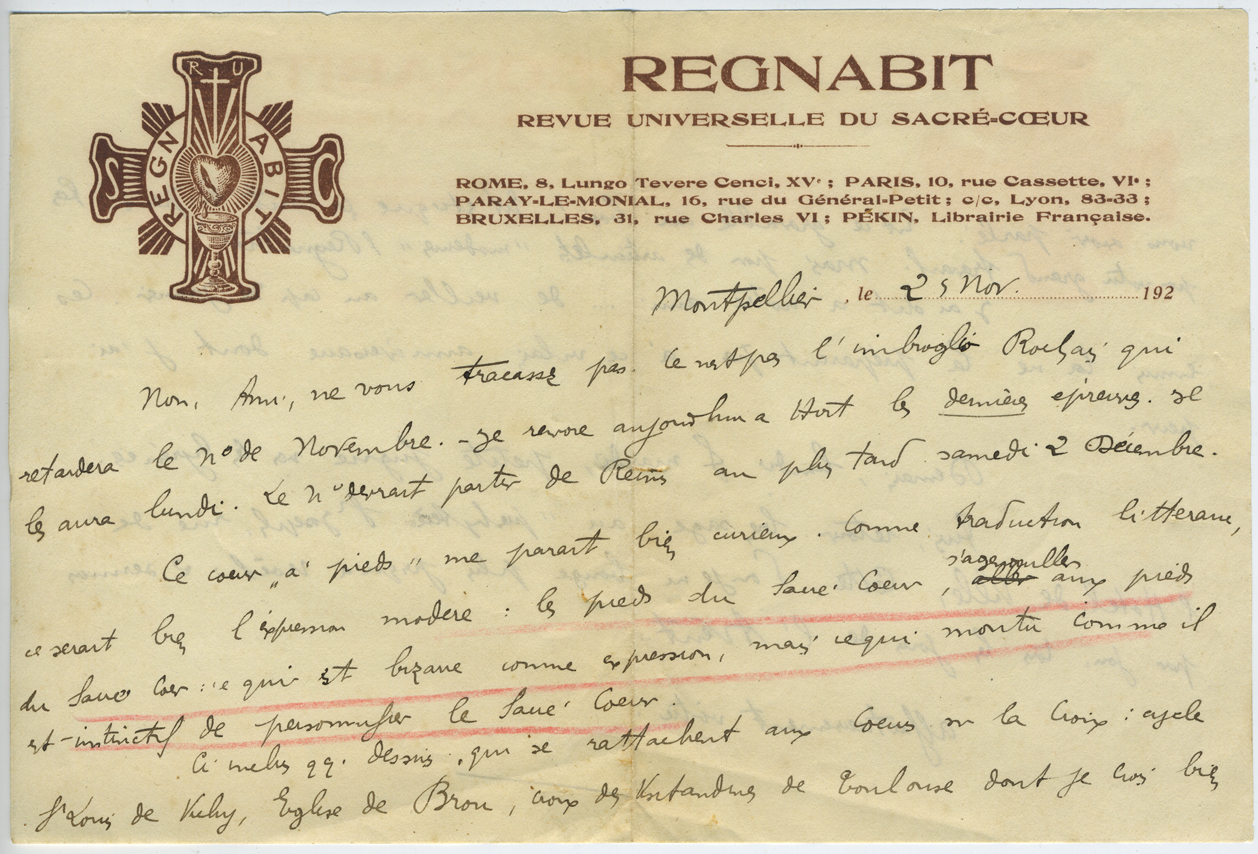 R U
REGN ABIT
S C
REGNABIT
REVUE UNIVERSELLE DU SACRÉ-CŒUR
ROME, 8, Lungo Tevere Cenci, XVʳ ; PARIS, 10, rue Cassette, VIᵉ ;
PARAY-LE-MONIAL, 16, rue du Général-Petit ; c/c, Lyon, 83-33 ;
BRUXELLES, 31, rue Charles VI ; PÉKIN, Librairie Française.
Montpellier, le 25 Nov. 192
Non, Ami, ne vous tracassez pas. Ce n'est pas l'imbroglio qui
retardera le N° de Novembre. - Je revoie aujourd'hui à Hort les dernières épreuves. Il
les aura lundi. Le N° devrait partir de Reims au plus tard samedi 2 Décembre.
Ce coeur "à pieds" me parait bien curieux. Comme traduction litteraire,
ce serait bien l'expression modere : les pieds du Sacré-Coeur, s'agenouiller aux pieds
du Sacré Coeur : ce qui est bizarre comme expression, mais ce qui montre comme il
est instinctif de personnifier le Sacré Coeur.
Ci inclus qq. dessins, qui se rattachent aux Coeurs sur la Croix : cycle
St Louis de Vichy, Eglise de Brou, croix des Visitandines de Toulouse dont je crois bien